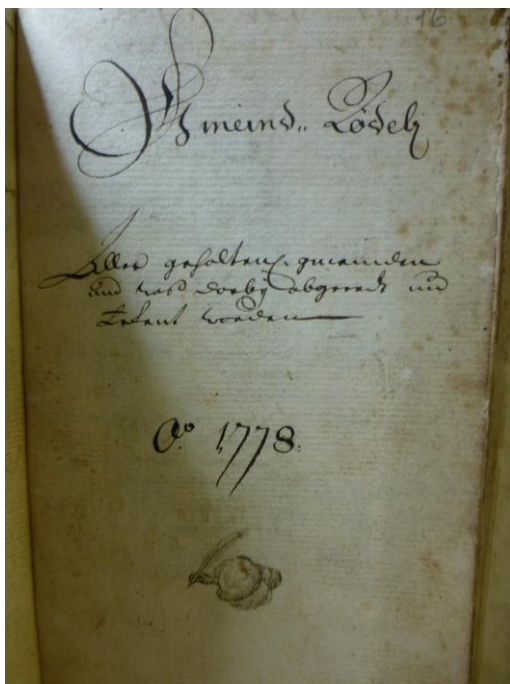 16
Gmeind„ Rödel
Aller gehaltenen gmeinden
und was darbey abgeredt und
Erkent worden
Aº 1778.